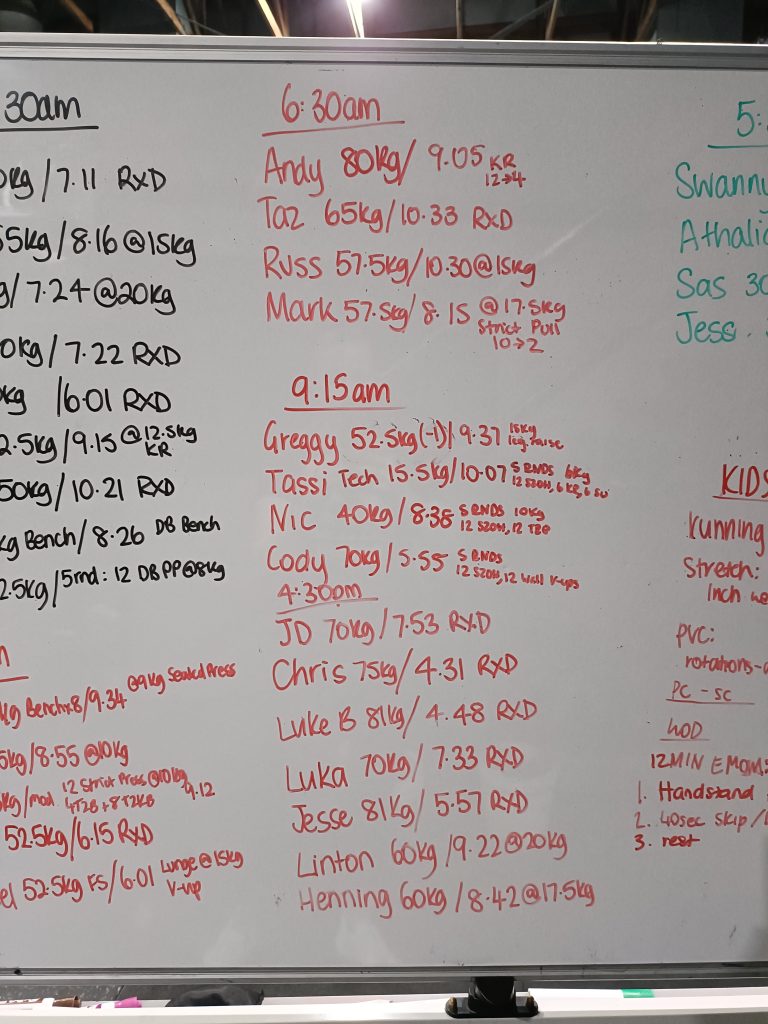 30am
kg/7.11 RXD
55kg/8.16 @15kg
/7.24@20kg
0kg/7.22 RXD
kg /6.01 RXD
2.5kg/9.15 @12.5kg
KR
50kg/10.21 RXD
kg Bench/8.26 DB Bench
2.5kg/5rnd: 12 DB PP@8kg
kg Benchx8/9.34 @9kg Seated Press
5kg/8.55 @10kg
kg/mod 12 Strict Press @10kg 9.12
4T2B + 8T2KB
52.5kg/6.15 RXD
el 52.5kg FS/6.01 Lunge@15kg
V-up
6:30am
Andy 80kg/ 9.05 KR
12→4
Taz 65kg/10.33 RXD
Russ 57.5kg/10.30@15kg
Mark 57.5kg/8.15 @17.5kg
Strict Pull
10→2
9:15am
Greggy 52.5kg(-1)/9.37 15kg
leg raise
Tassi Tech 15.5kg/10.07 5 RNDS 6kg
12 S2OH, 6 KR, 6 SU
Nic 40kg/8.38 5 RNDS 10kg
12 S2OH, 12 TBO
Cody 70kg/5.55 5 RNDS
12 S2OH, 12 Wall V-ups
4:30pm
JD 70kg/7.53 RXD
Chris 75kg/4.31 RXD
Luke B 81kg/4.48 RXD
Luka 70kg/7.33 RXD
Jesse 81kg/5.57 RXD
Linton 60kg/9.22@20kg
Henning 60kg/8.42@17.5kg
5:
Swanny
Athalia
Sas 30
Jess.
KIDS
running
Stretch:
Inch
PVC:
rotations
PC - SC
WOD
12MIN EMOM:
1. Handstand
2. 40sec skip/
3. rest